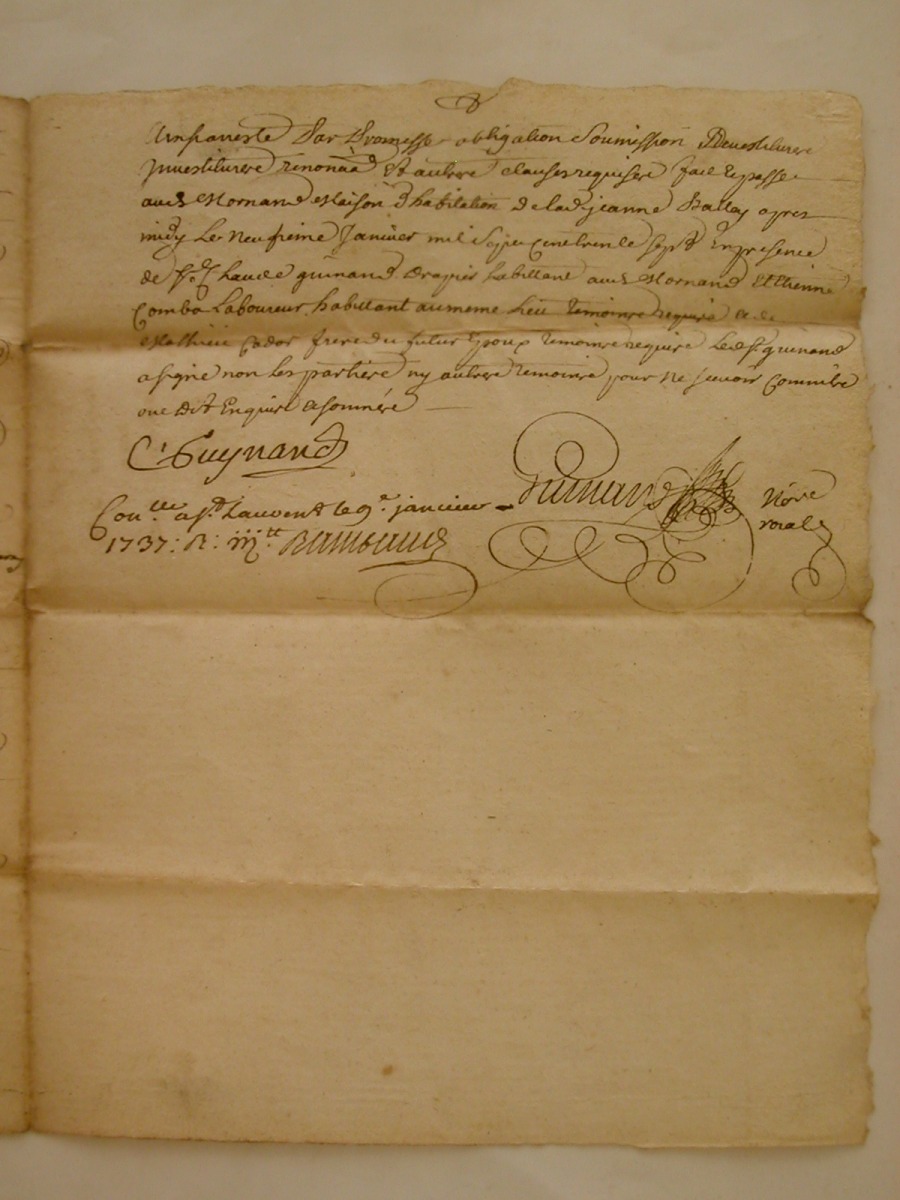 Ainsi arresté Par Promesse obligation Soumission Devestiture
Jnvestiture renonaõn Et autres clauses requises fait Et passe
aud Mornand Maison d'habitation de lad jeanne Ballay apres
midy Le Neufieme Janvier mil Sept Cent trente Sept En presence
de Sr. Claude guinand Drapier habittant aud Mornand Etienne
Combo Laboureur habittant au meme lieu temoins requis
Mathieu Cador frere du futur Epoux temoins requis Led Sr. guinand
a signé non les parties ny autres temoins pour Ne scavoir Comme ils
ont Dit Enquis et sommés
C: Guynand
Con.lle a St Laurent le 9e janvier
1737: R:
Dumand Nore
roial